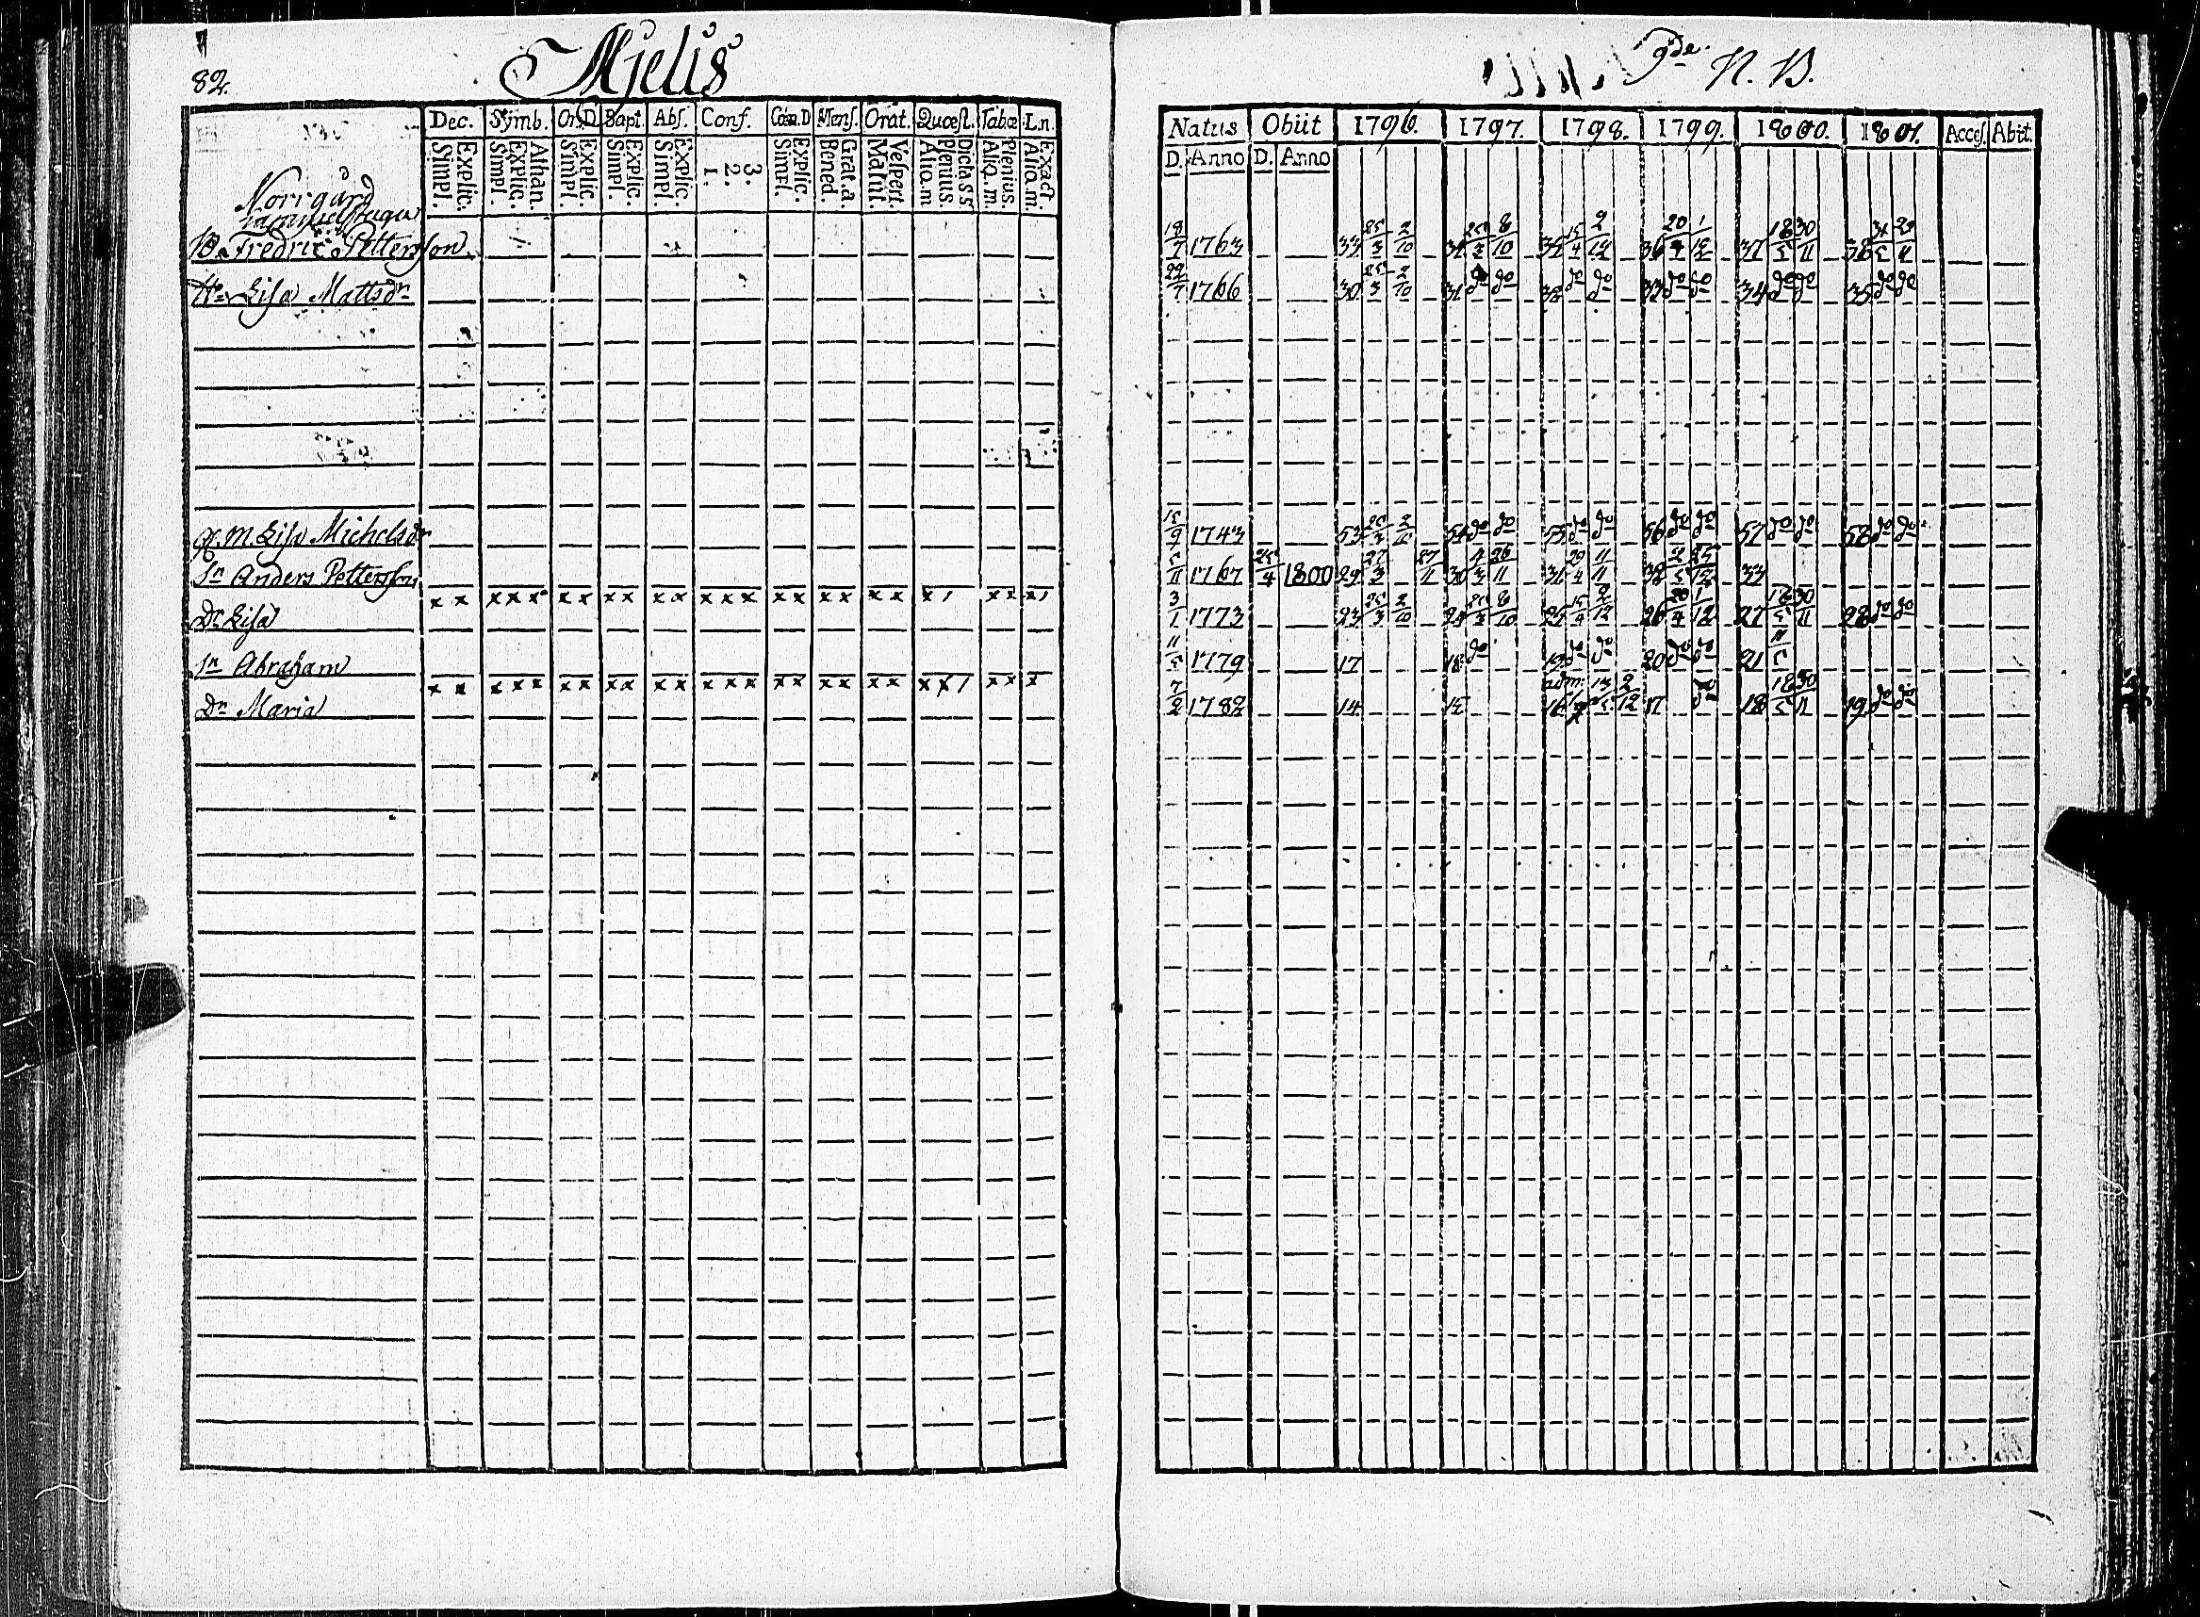 82.
Mjelis
9de N. B.
Dec. Symb. Or. D. Bapt. Abs. Conf. Cœn. D Mens. Orat. Quœst. Tabœ Ln.
Simpl. Explic. Simpl. Explic. Athan. Simpl. Explic. Simpl. Explic. Simpl. Explic. 1. 2. 3. Simpl. Explic. Bened. Grat. a. Matut. Vespert. Aliq. m Plenius Dicta S.S. Aliq. m. Plenius. Aliq. m. Exact.
Natus Obiit 1796. 1797. 1798. 1799. 1800. 1801. Acces. Abiit.
D. Anno D. Anno
Norrigård
B. Fredric Petterson 18/7 1763 33 25/3 2/10 34 8/10 15/4 2/12 36 20/4 1/12 37 18/5 30/11 38 29/11
Hu. Lisa Mattsdr 22/7 1766 30 25/3 2/10 31 do do 32 do do 33 do do 34 do do 35 do do
g. m. Lisa Michelsdr 15/9 1743 53 25/3 2/10 54 do do 55 do do 56 do do 57 do do 58 do do
Sn Anders Petterson 5/11 1767 25/4 1800 29 27/3 27/11 30 4/3 26/11 31 20/4 11/11 32 33
x x x x x x x x x x x x x x x x x x x x x x x x x
Dr Lisa 3/1 1773 23 25/3 2/10 24 8/10 25 15/4 2/12 26 20/4 1/12 27 18/5 30/11 28 do do
Sn Abraham 11/5 1779 17 18 do 19 do do 20 do do 21 11/5
x x x x x x x x x x x x x x x x x x x x x x x x x
Dr Maria 7/2 1782 14 15 adm. 16 13/5 2/12 17 do 18 18/5 30/11 19 do do